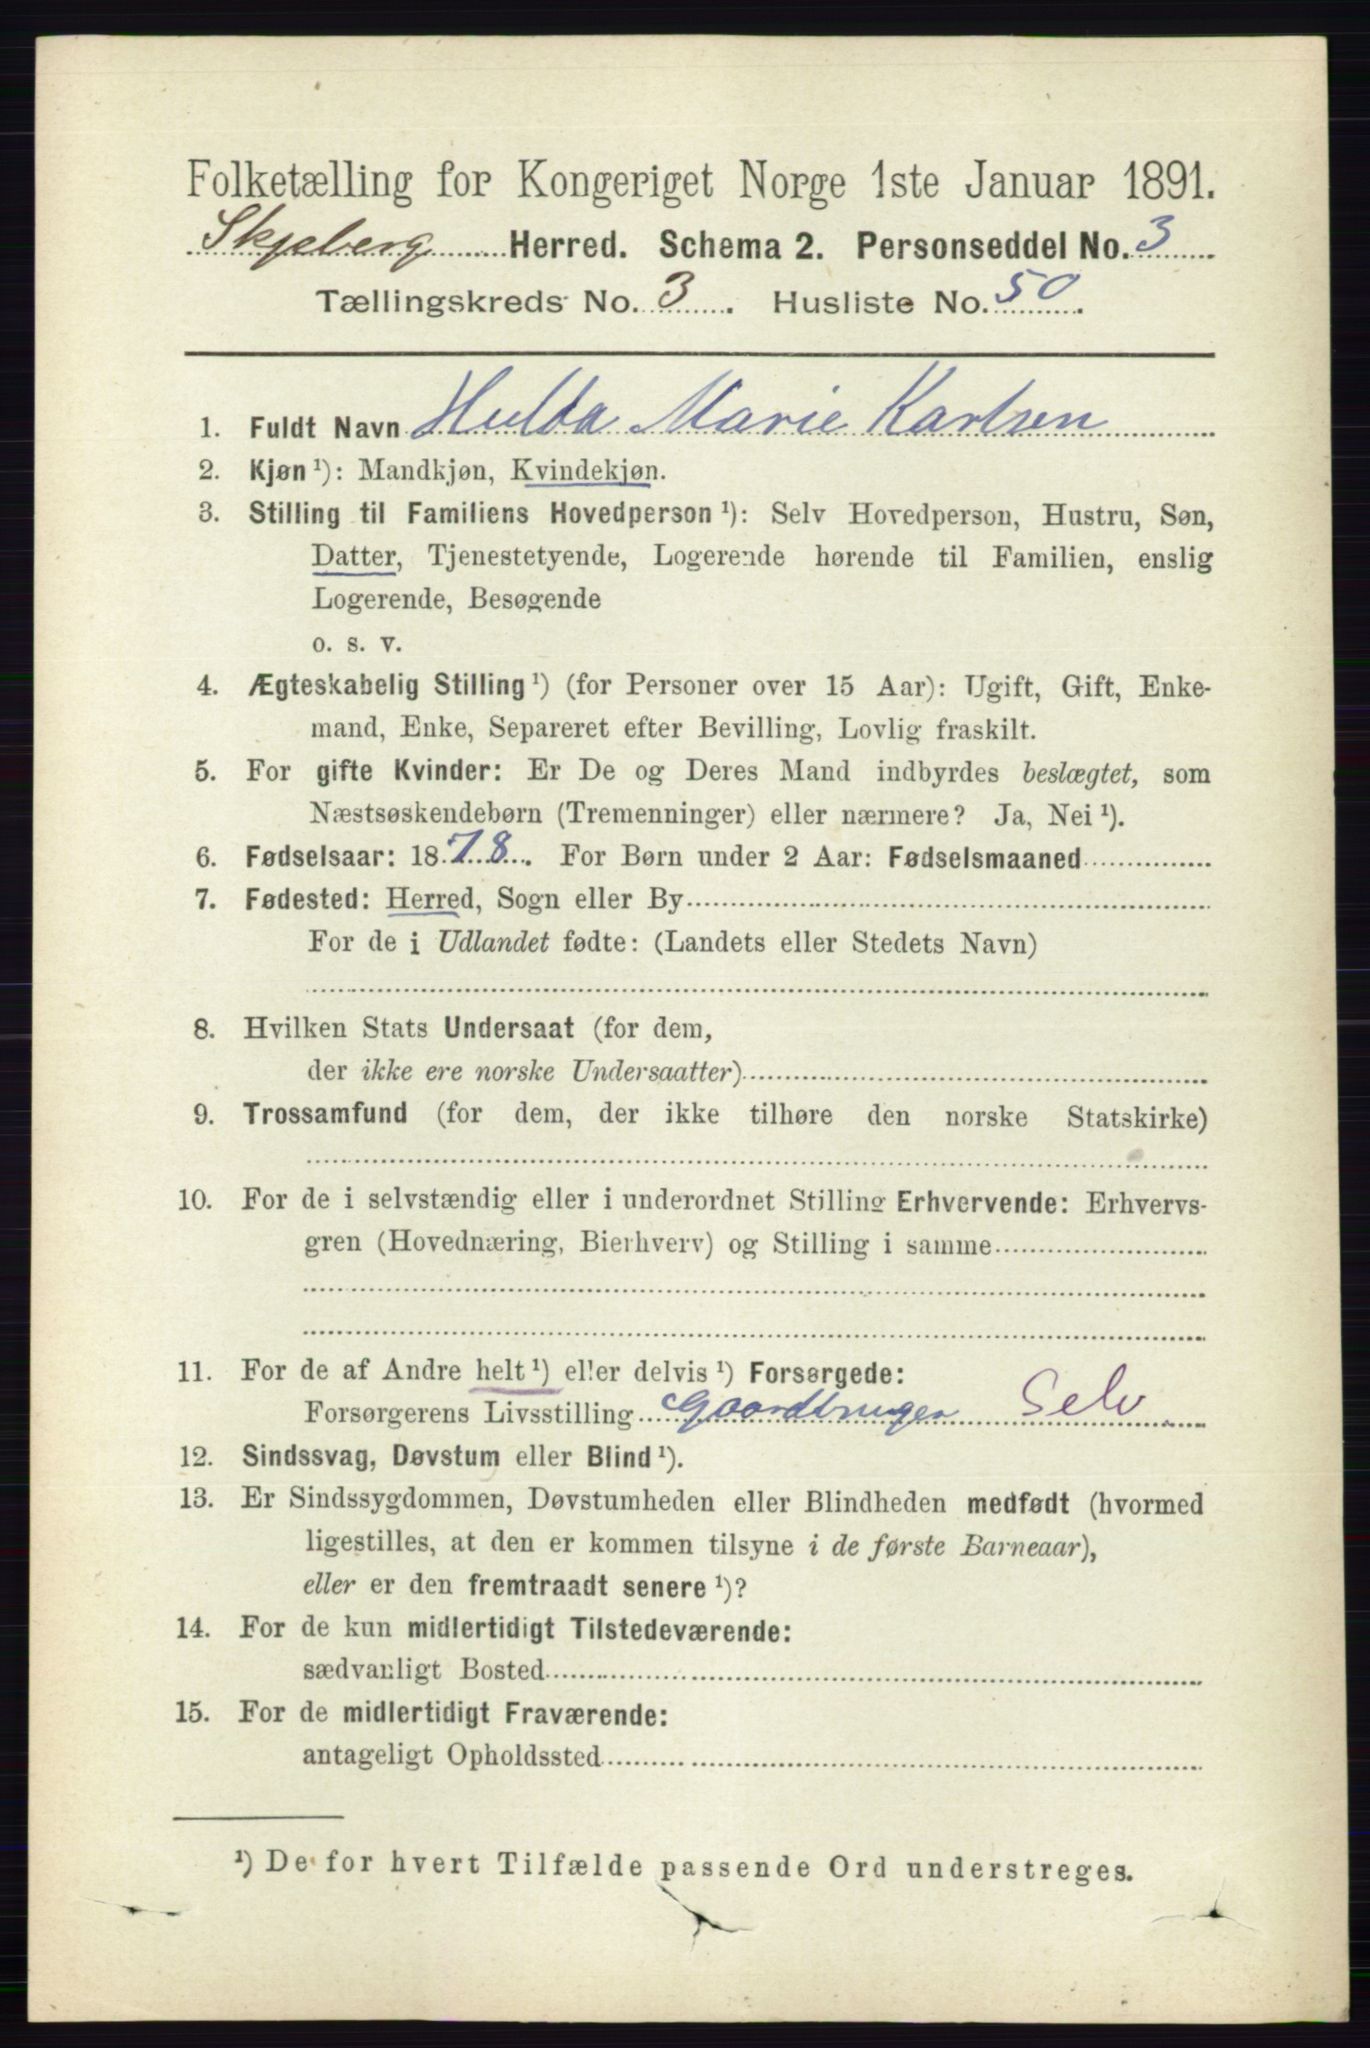 Folketælling for Kongeriget Norge 1ste Januar 1891.
Skjeberg Herred. Schema 2. Personseddel No. 3
Tællingskreds No. 3. Husliste No. 50.
1. Fuldt Navn Hulda Marie Karlsen
2. Kjøn ¹): Mandkjøn, Kvindekjøn.
3. Stilling til Familiens Hovedperson ¹): Selv Hovedperson, Hustru, Søn,
Datter, Tjenestetyende, Logerende hørende til Familien, enslig
Logerende, Besøgende
o. s. v.
4. Ægteskabelig Stilling ¹) (for Personer over 15 Aar): Ugift, Gift, Enke-
mand, Enke, Separeret efter Bevilling, Lovlig fraskilt.
5. For gifte Kvinder: Er De og Deres Mand indbyrdes beslægtet, som
Næstsøskendebørn (Tremenninger) eller nærmere? Ja, Nei ¹).
6. Fødselsaar: 1878. For Børn under 2 Aar: Fødselsmaaned
7. Fødested: Herred, Sogn eller By
For de i Udlandet fødte: (Landets eller Stedets Navn)
8. Hvilken Stats Undersaat (for dem,
der ikke ere norske Undersaatter)
9. Trossamfund (for dem, der ikke tilhøre den norske Statskirke)
10. For de i selvstændig eller i underordnet Stilling Erhvervende: Erhvervs-
gren (Hovednæring, Bierhverv) og Stilling i samme
11. For de af Andre helt ¹) eller delvis ¹) Forsørgede:
Forsørgerens Livsstilling Gaardbruger Selv.
12. Sindssvag, Døvstum eller Blind ¹).
13. Er Sindssygdommen, Døvstumheden eller Blindheden medfødt (hvormed
ligestilles, at den er kommen tilsyne i de første Barneaar),
eller er den fremtraadt senere ¹)?
14. For de kun midlertidigt Tilstedeværende:
sædvanligt Bosted
15. For de midlertidigt Fraværende:
antageligt Opholdssted
¹) De for hvert Tilfælde passende Ord understreges.